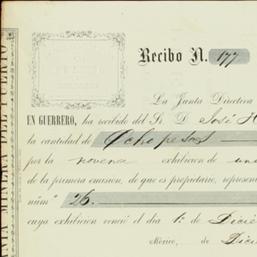 Recibo N. 177
La Junta Directiva
EN GUERRERO, ha recibido del Sr. D. José
la cantidad de Ocho pesos
por la novena exhibicion de una
de la primera emision, de que es propietario, represent
núm° 26.
cuya exhibicion venció el dia 1.° de Dicie
México, de Dici